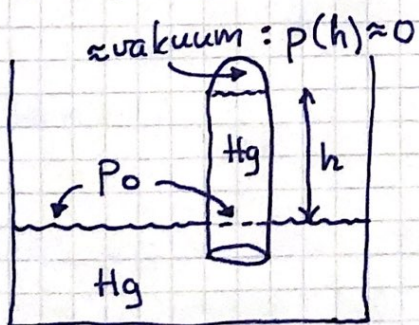 ≈vakuum : p(h)≈0
Hg
h
Po
Hg